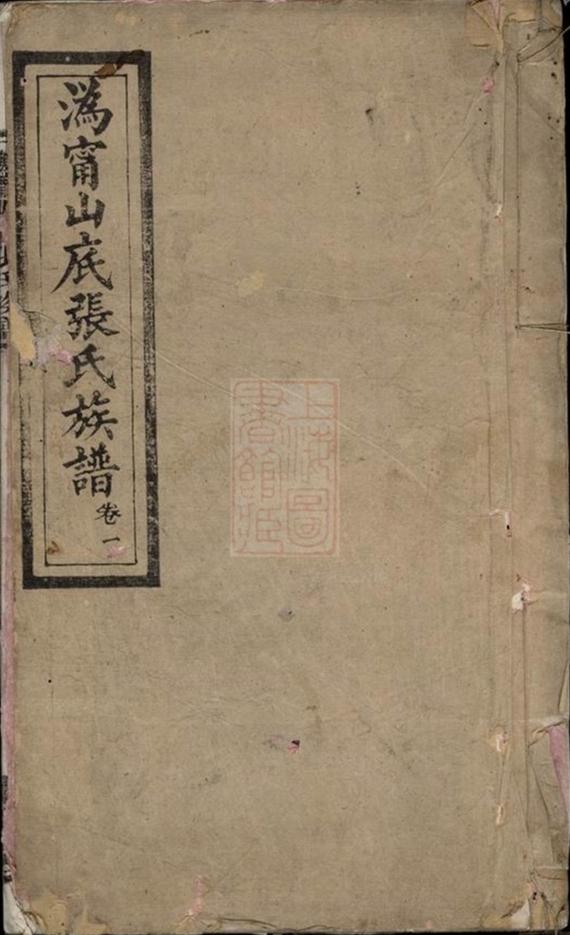 溈甯山底張氏族譜
卷一
上海圖
書館藏